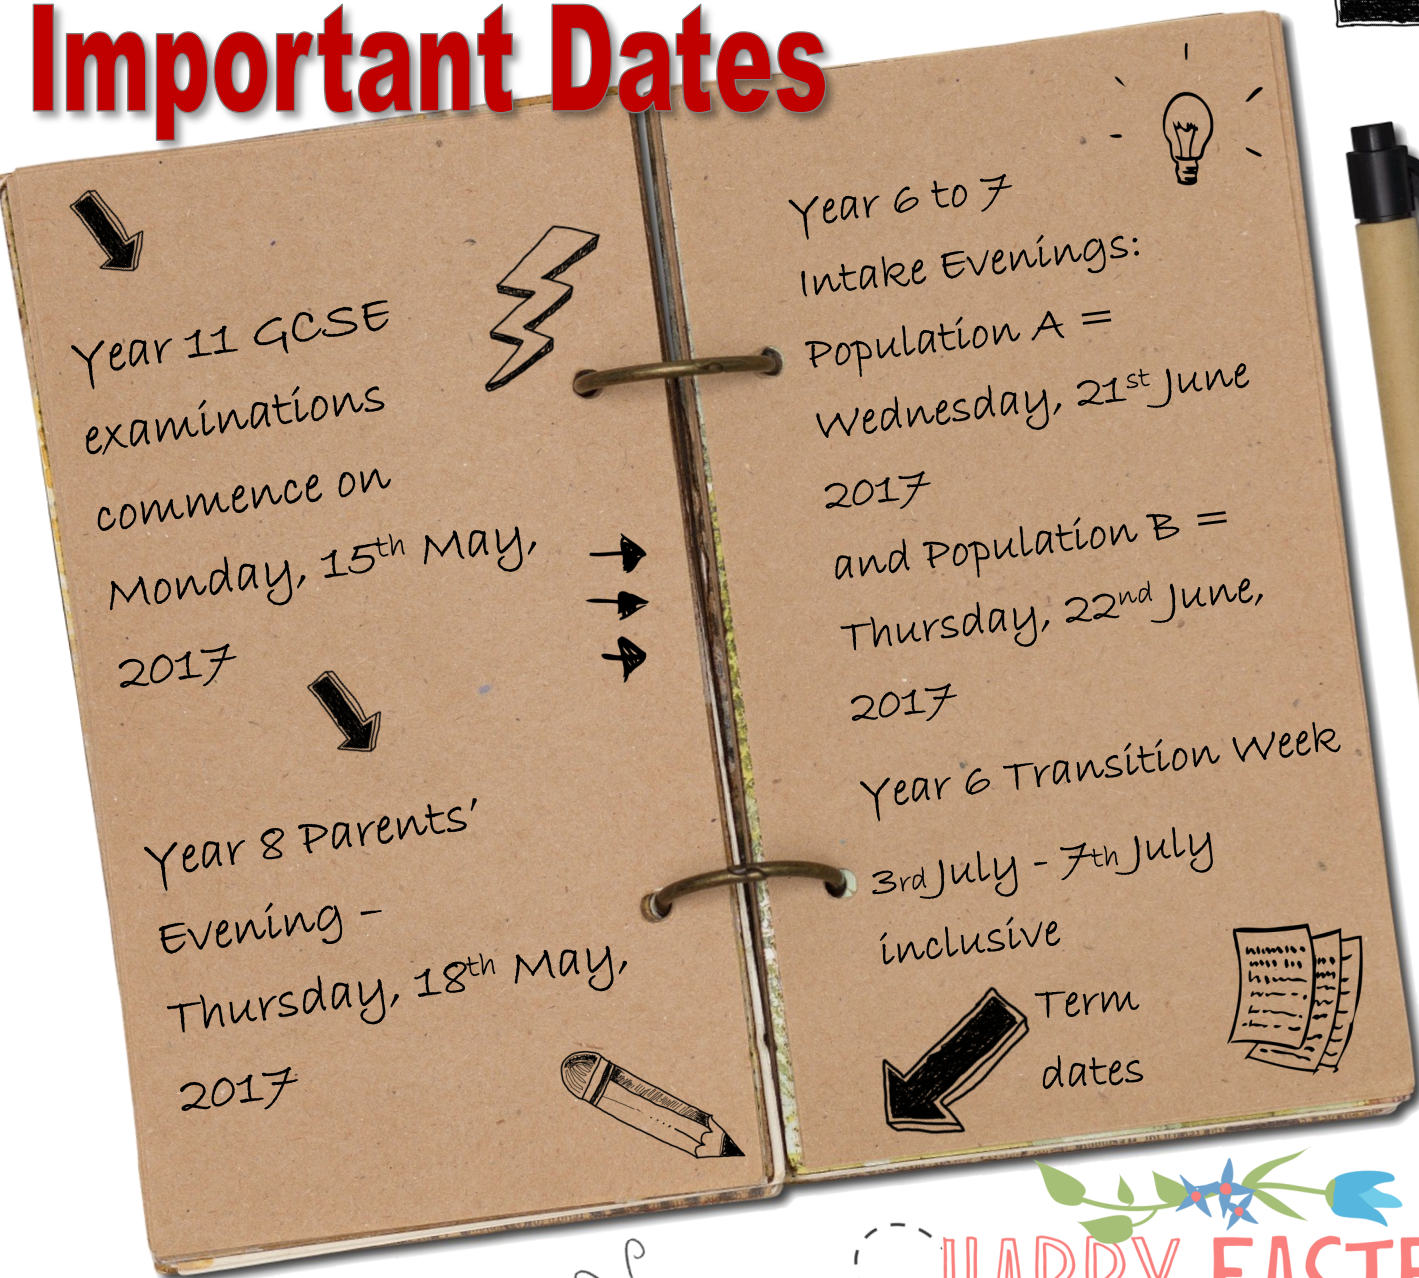 Important Dates
Year 11 GCSE
examinations
commence on
Monday, 15th May,
2017
Year 8 Parents'
Evening –
Thursday, 18th May,
2017
Year 6 to 7
Intake Evenings:
Population A =
Wednesday, 21st June
2017
and Population B =
Thursday, 22nd June,
2017
Year 6 Transition Week
3rd July - 7th July
inclusive
Term
dates
HAPPY